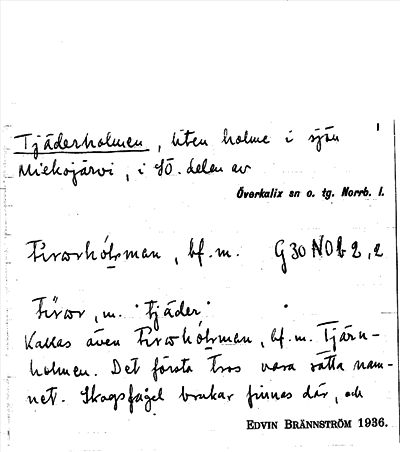 Tjäderholmen, liten holme i sjön
Miekojärvi, i SÖ. delen av
Överkalix sn o. tg. Norrb. l.
bf. m. G30 NOb 2,2
m. "tjäder"
Kallas även bf. m. Tjärn-
holmen. Det första tros vara rätta nam-
net. Skogsfågel brukar finnas där, och
EDVIN BRÄNNSTRÖM 1936.